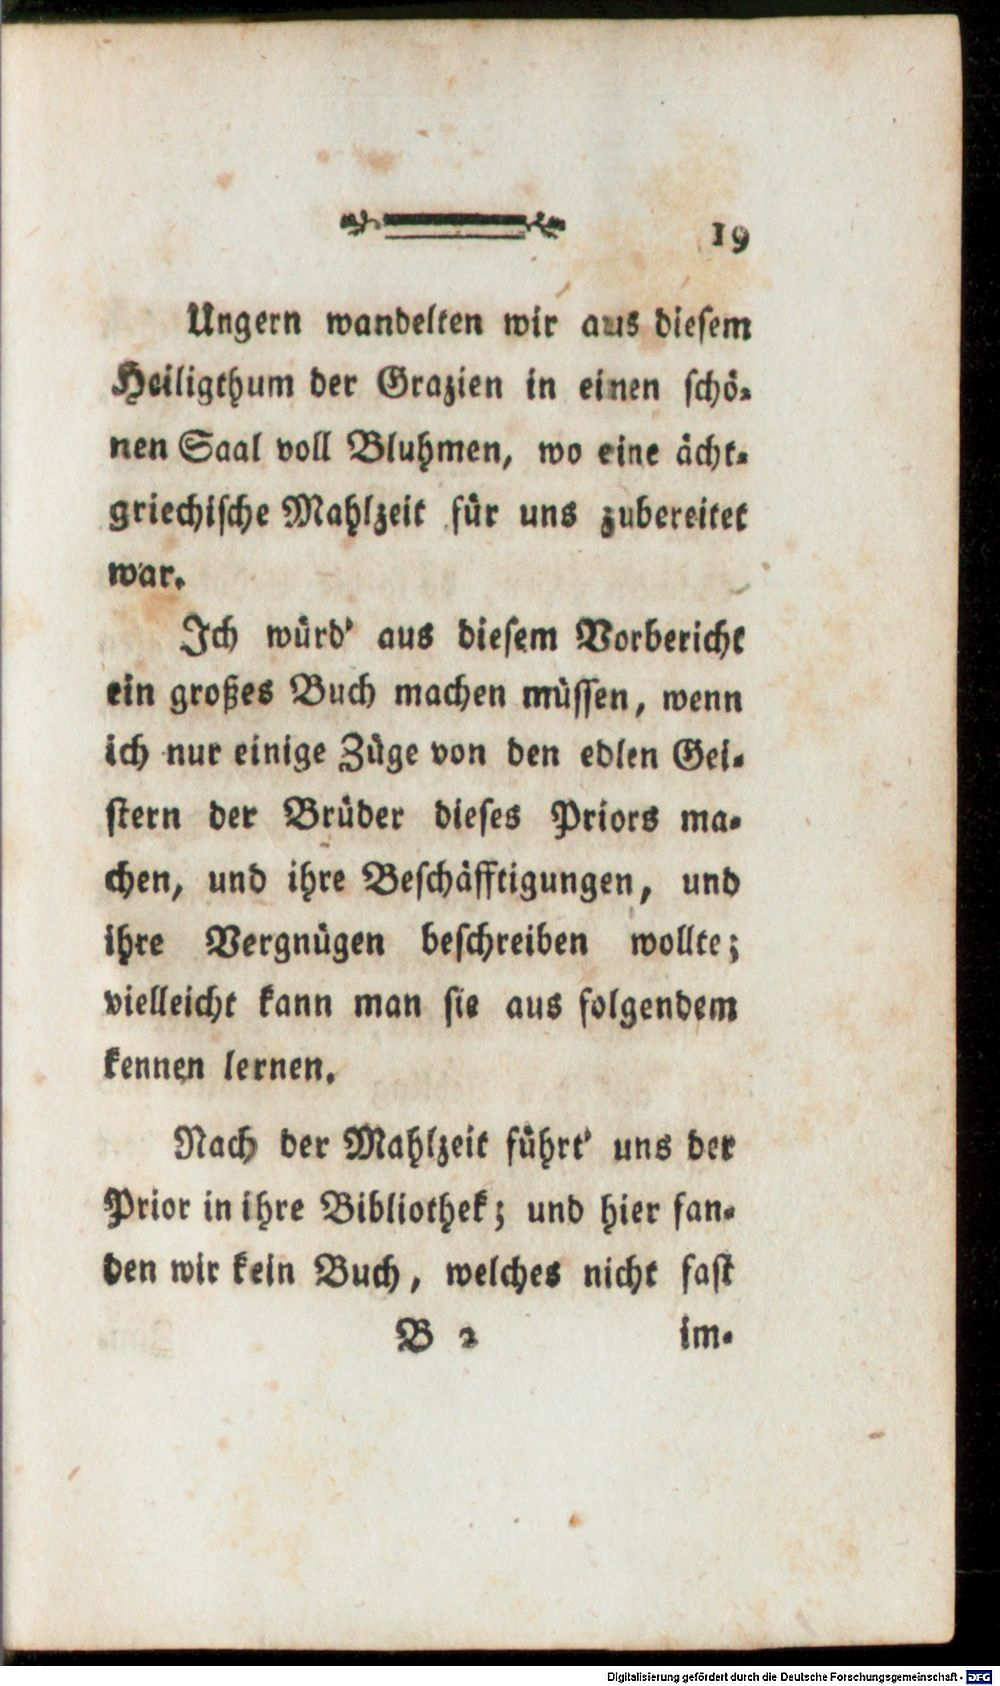 19
Ungern wandelten wir aus diesem
Heiligthum der Grazien in einen schö-
nen Saal voll Bluhmen, wo eine ächt-
griechische Mahlzeit für uns zubereitet
war.
Ich würd' aus diesem Vorbericht
ein großes Buch machen müssen, wenn
ich nur einige Züge von den edlen Gei-
stern der Brüder dieses Priors ma-
chen, und ihre Beschäfftigungen, und
ihre Vergnügen beschreiben wollte;
vielleicht kann man sie aus folgendem
kennen lernen.
Nach der Mahlzeit führt' uns der
Prior in ihre Bibliothek; und hier fan-
den wir kein Buch, welches nicht fast
B 2 im-
Digitalisierung gefördert durch die Deutsche Forschungsgemeinschaft - DFG